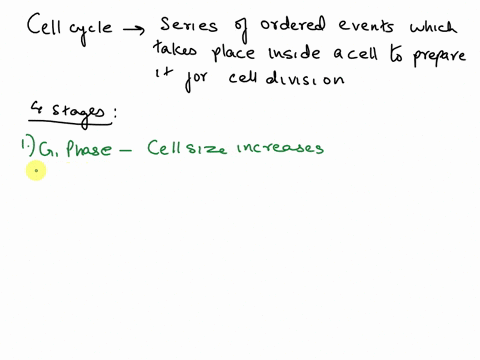 Cell cycle → Series of ordered events which
takes place inside a cell to prepare
it for cell division
4 Stages:
1.) G1 Phase – Cell size increases